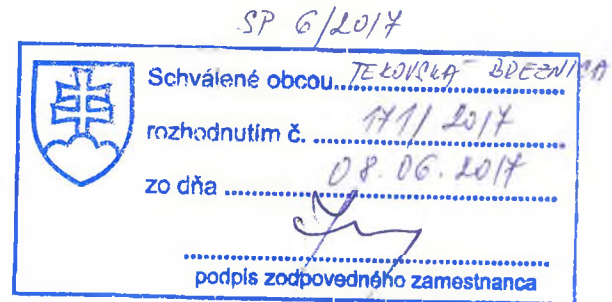 SP 6/2017
Schválené obcou TEKOVSKÁ BREZNICA
rozhodnutím č. 171/2017
zo dňa 08.06.2017
podpis zodpovedného zamestnanca